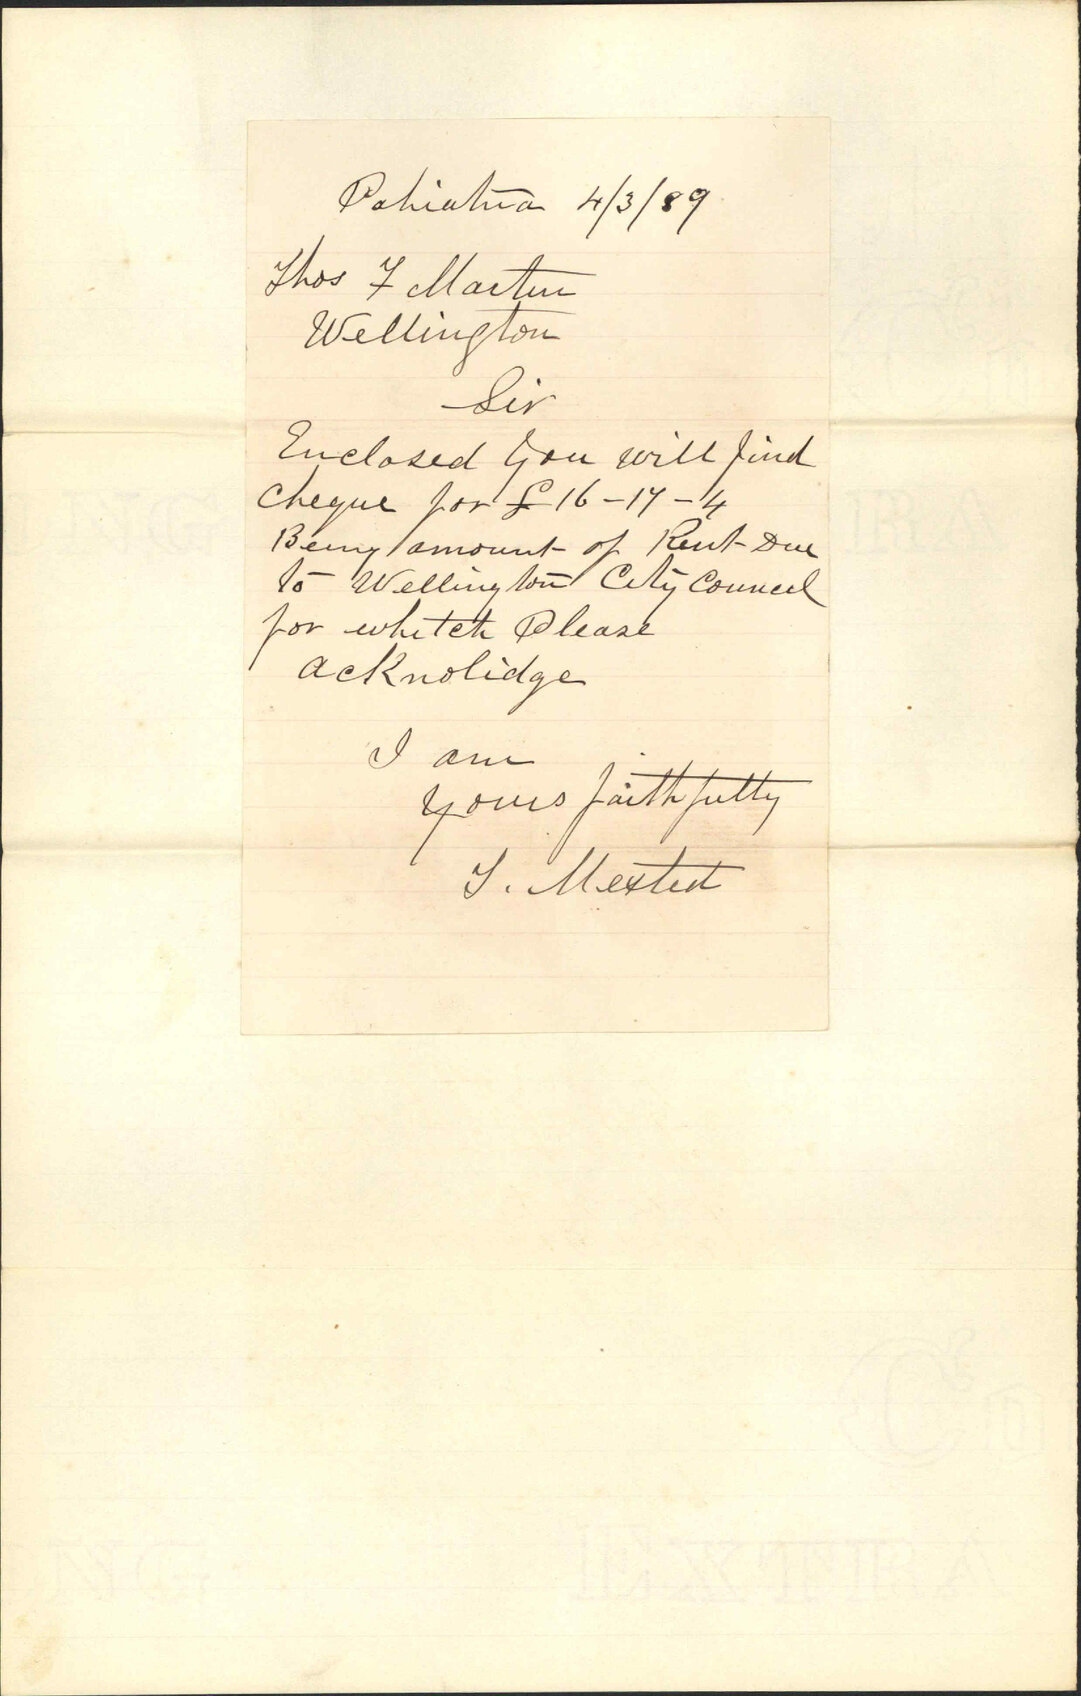 Pahiatua 4/3/89
Thos F Martin
Wellington
Sir
Enclosed you will find
cheque for £16-17-4
Being amount of Rent Due
to Wellington City Council
for whitch Please
acknolidge
I am
yours faithfully
T. Mexted